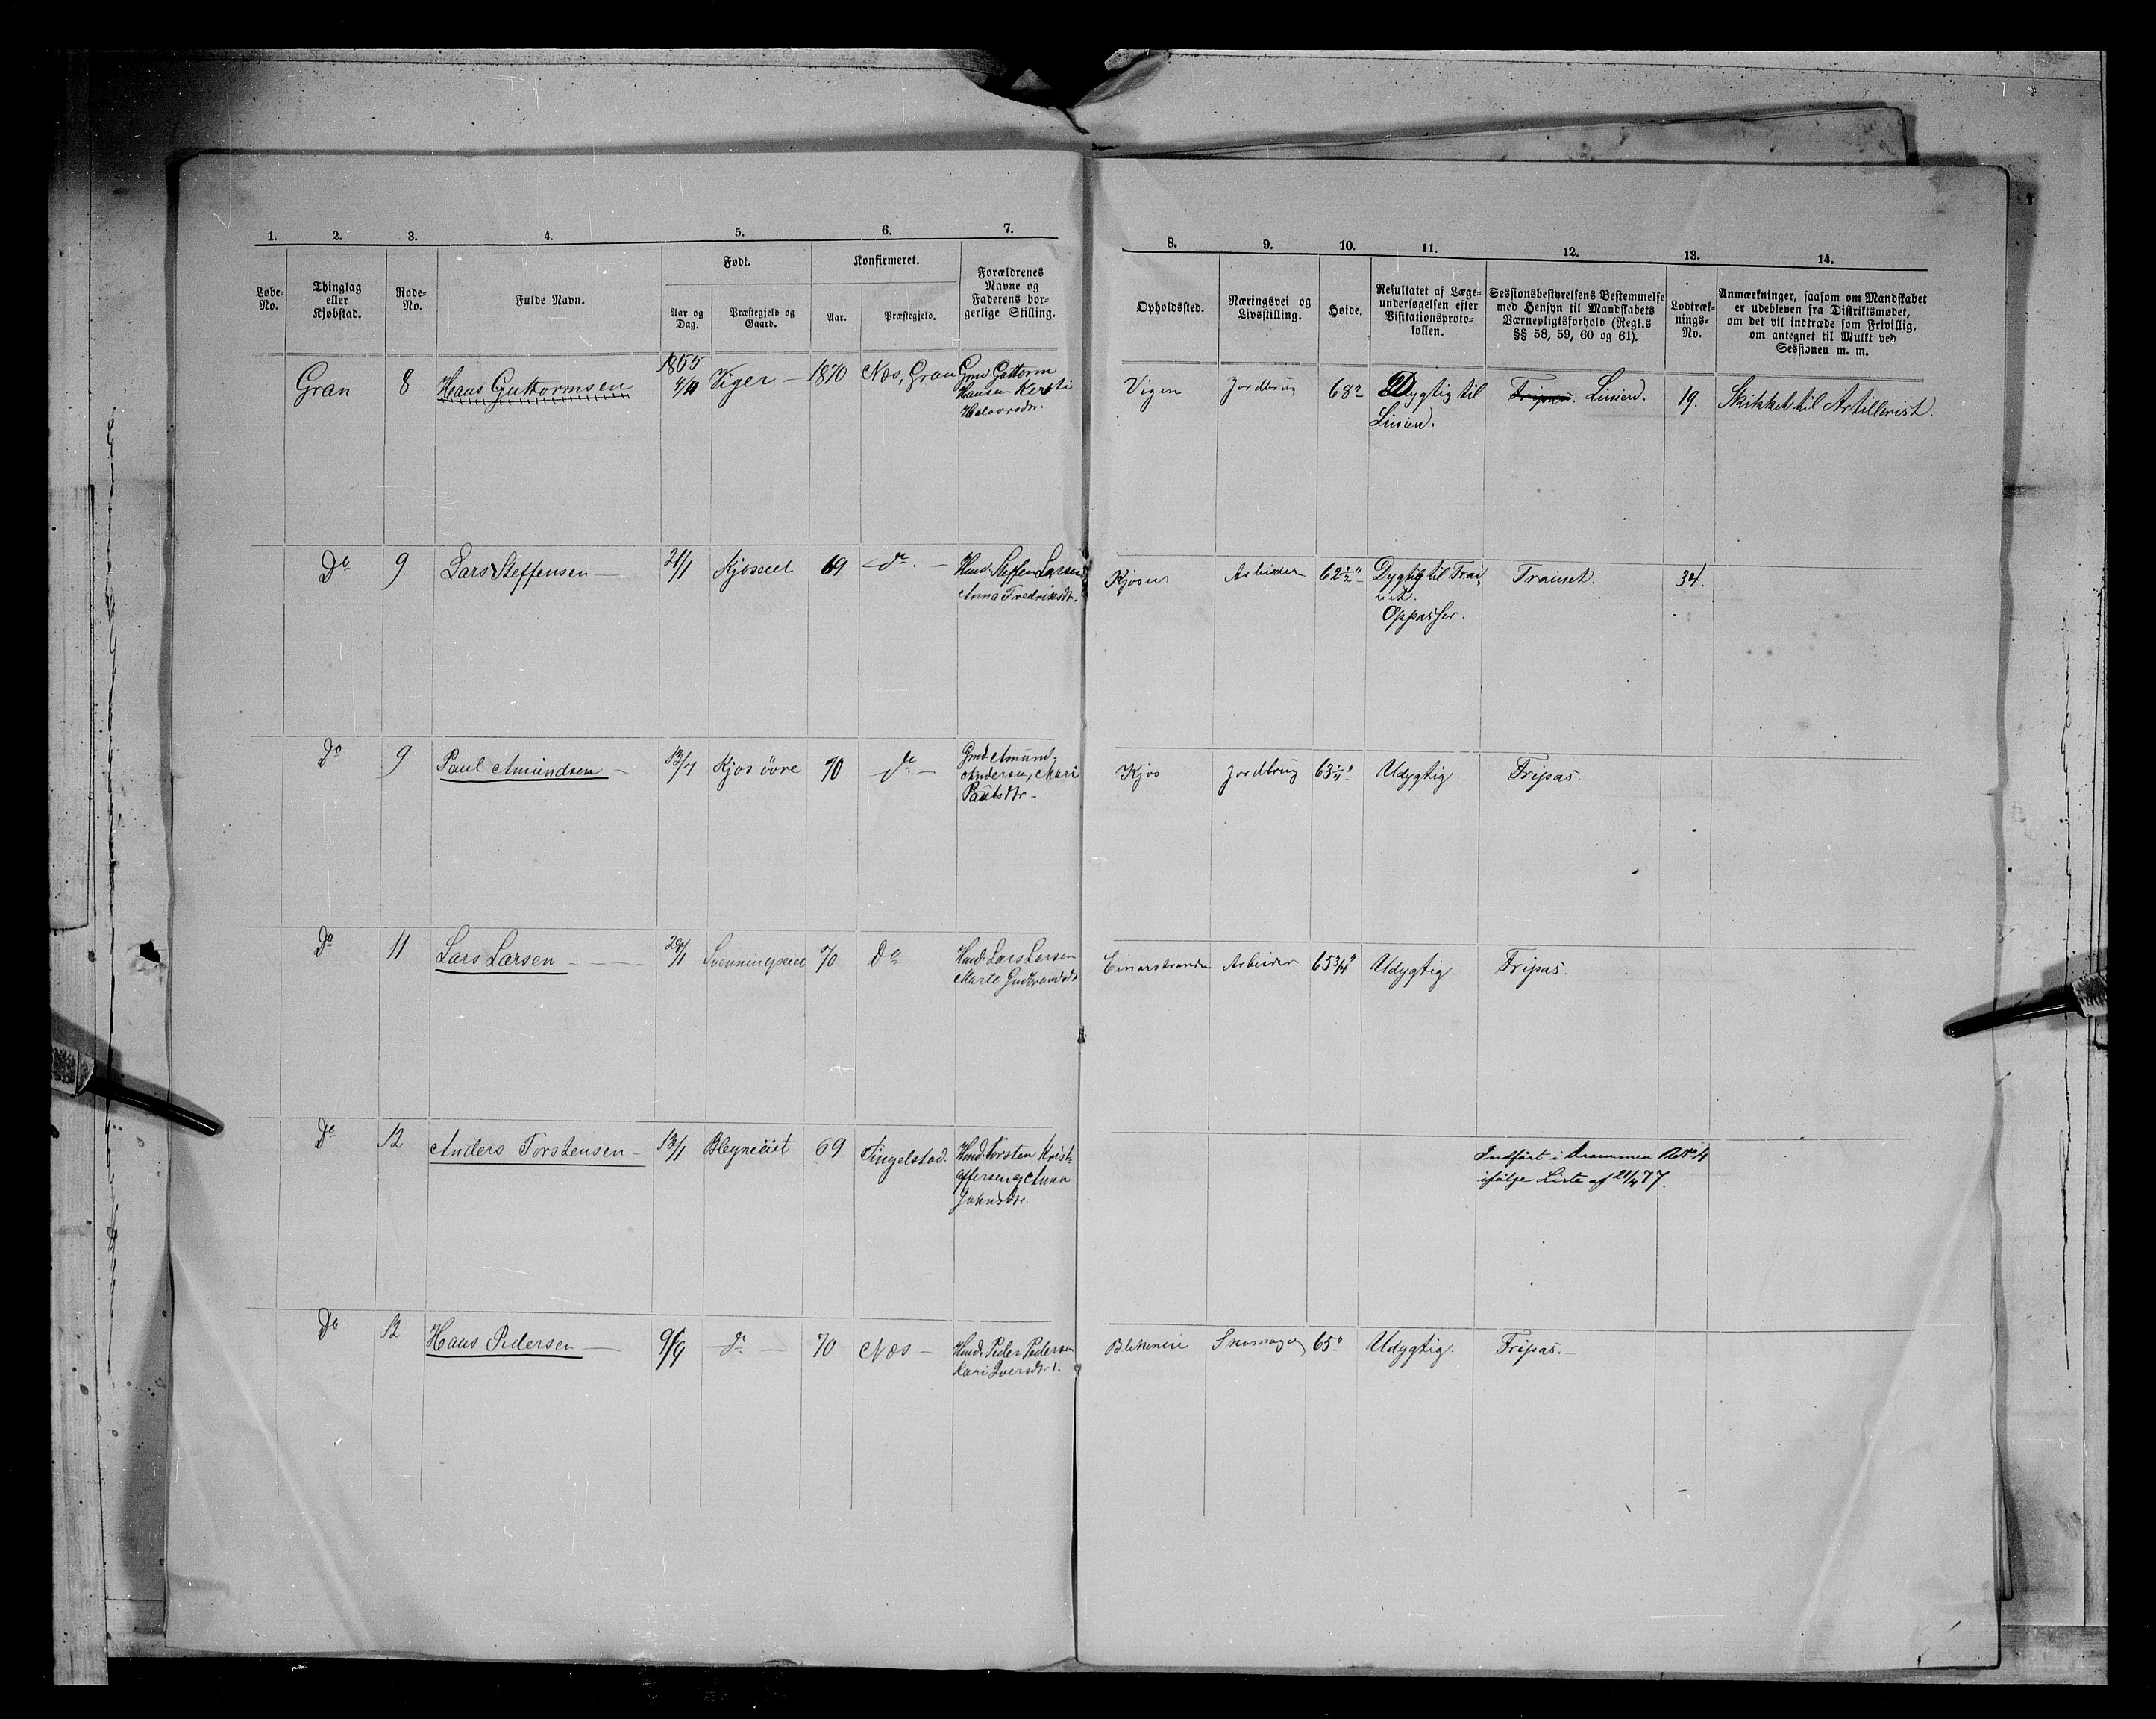 1. 2. 3. 4. 5. 6. 7.
Løbe-No.
Thinglag eller Kjøbstad.
Rode-No.
Fulde Navn.
Født.
Aar og Dag.
Præstegjeld og Gaard.
Konfirmeret.
Aar.
Præstegjeld.
Forældrenes
Navne og
Faderens bor-
gerlige Stilling.
8. 9. 10. 11. 12. 13. 14.
Opholdssted.
Næringsvei og
Livsstilling.
Høide.
Resultatet af Læge-
undersøgelsen efter
Visitationsproto-
kollen.
Sessionsbestyrelsens Bestemmelse
med Hensyn til Mandskabets
Værnepligtsforhold (Regl.s
§§ 58, 59, 60 og 61).
Lodtræk-
nings-
No.
Anmærkninger, saasom om Mandskabet
er udebleven fra Distriktsmødet,
om det vil indtræde som Frivillig,
om antegnet til Mulkt ved
Sessionen m. m.
Gran 8 Hans Guttormsen 1855 4/10 Viger — 1870 Næs, Gran Gmd. Guttorm
Hansen Kersti
Halvorsdtr.
Vigen Jordbrug 68" Dygtig til Linien. Fripas. Linien. 19. Skikket til Artillerist.
Do 9 Lars Steffensen — 21/1 Kjøseiet 69 do. — Hmd. Steffen Larsen
Anna Fredriksdtr.
Kjosen Arbeider 62½" Dygtig til Trai-
net.
Oppasser.
Trainet. 34.
Do 9 Paul Amundsen — 13/7 Kjos øvre 70 do — Gmd. Amund
Andersen, Mari
Paulsdtr —
Kjos Jordbrug 63¼" Udygtig. Fripas.
Do 11 Lars Larsen — 29/1 Svenningseiet 70 Do Hmd. Lars Larsen
Marte Gudbrandsdt
Einarstranden Arbeider 65¾" Udygtig. Fripas.
Do 12 Anders Torstensen — 13/1 Blegneiet 69 Tingelstad. Hmd. Torsten Krist-
offersen og Anna
Johnsdtr.
Indført i Drammen
ifølge Liste af 21/4 77.
Do 12 Hans Pedersen — 9/9 do — 70 Næs — Hmd. Peder Pedersen
Kari Iversdtr.
Skomager 65" Udygtig. Fripas. —